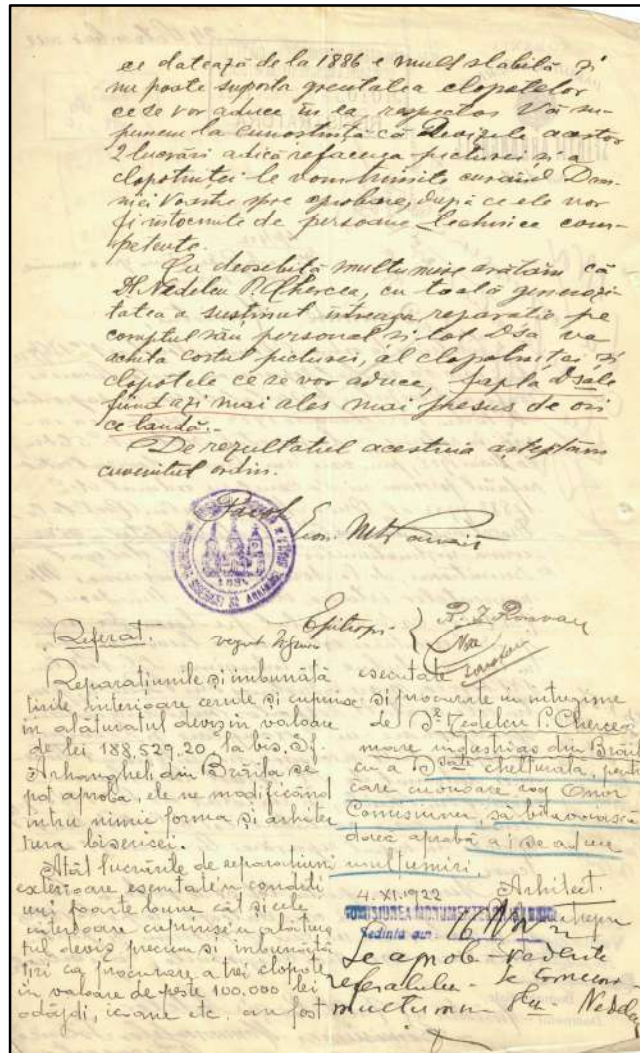 ce datează de la 1886 e mult slabită și
nu poate suporta greutatea clopotelor
ce se vor aduce în ea, respectos Vă su-
punem la cunostință că Devizele acestor
2 lucrări adică refacerea picturei și a
clopotniței le vom trimite curând Dom-
niei Voastre spre aprobare, după ce ele vor
fi întocmite de persoane technice com-
petente.
Cu deosebită multumire arătăm că
Dl. Nedelcu P. Chercea, cu toată generozi-
tatea a sustinut intreaga reparatie pe
comptul său personal si tot Dsa va
achita costul picturei, al clopotniței și
clopotele ce se vor aduce, faptă Dsale
fiind azi mai ales mai presus de ori
ce laudă.-
De rezultatul acestuia asteptăm
cuvenitul ordin.
Paroh
Econ.
1894
Epitropi.
Referat.
Reparațiunile și imbunătă
țirile interioare cerute și cuprinse
in alăturatul deviz in valoare
de lei 188.529.20, la bis. Sf.
Arhangheli din Brăila se
pot aproba, ele ne modificând
intru nimic forma și arhitec
tura bisericei.
Atât lucrările de reparațiuni
exterioare esecutate in conditi
uni foarte bune cât și cele
interioare cuprinse in alătura
tul deviz precum și imbunătă
țiri ca procurare a trei clopote
in valoare de peste 100.000 lei
odăjdii, icoane etc. au fost
esecutate
și procurate in intregime
de Dl. Nedelcu P. Chercea
mare industriaș din Brăila
cu a Dsale cheltuială, pentru
care cuvioare rog Onor
Comisiunea, să binevoiască
dorez aprobă a i se aduce
multumiri.
4. XI. 1922
Arhitect.
COMISIUNEA MONUMENTELOR ISTORICE
Sedinta din 16 Nov 22
Se aprobă
referatului. Se
multumiri Nedelcu